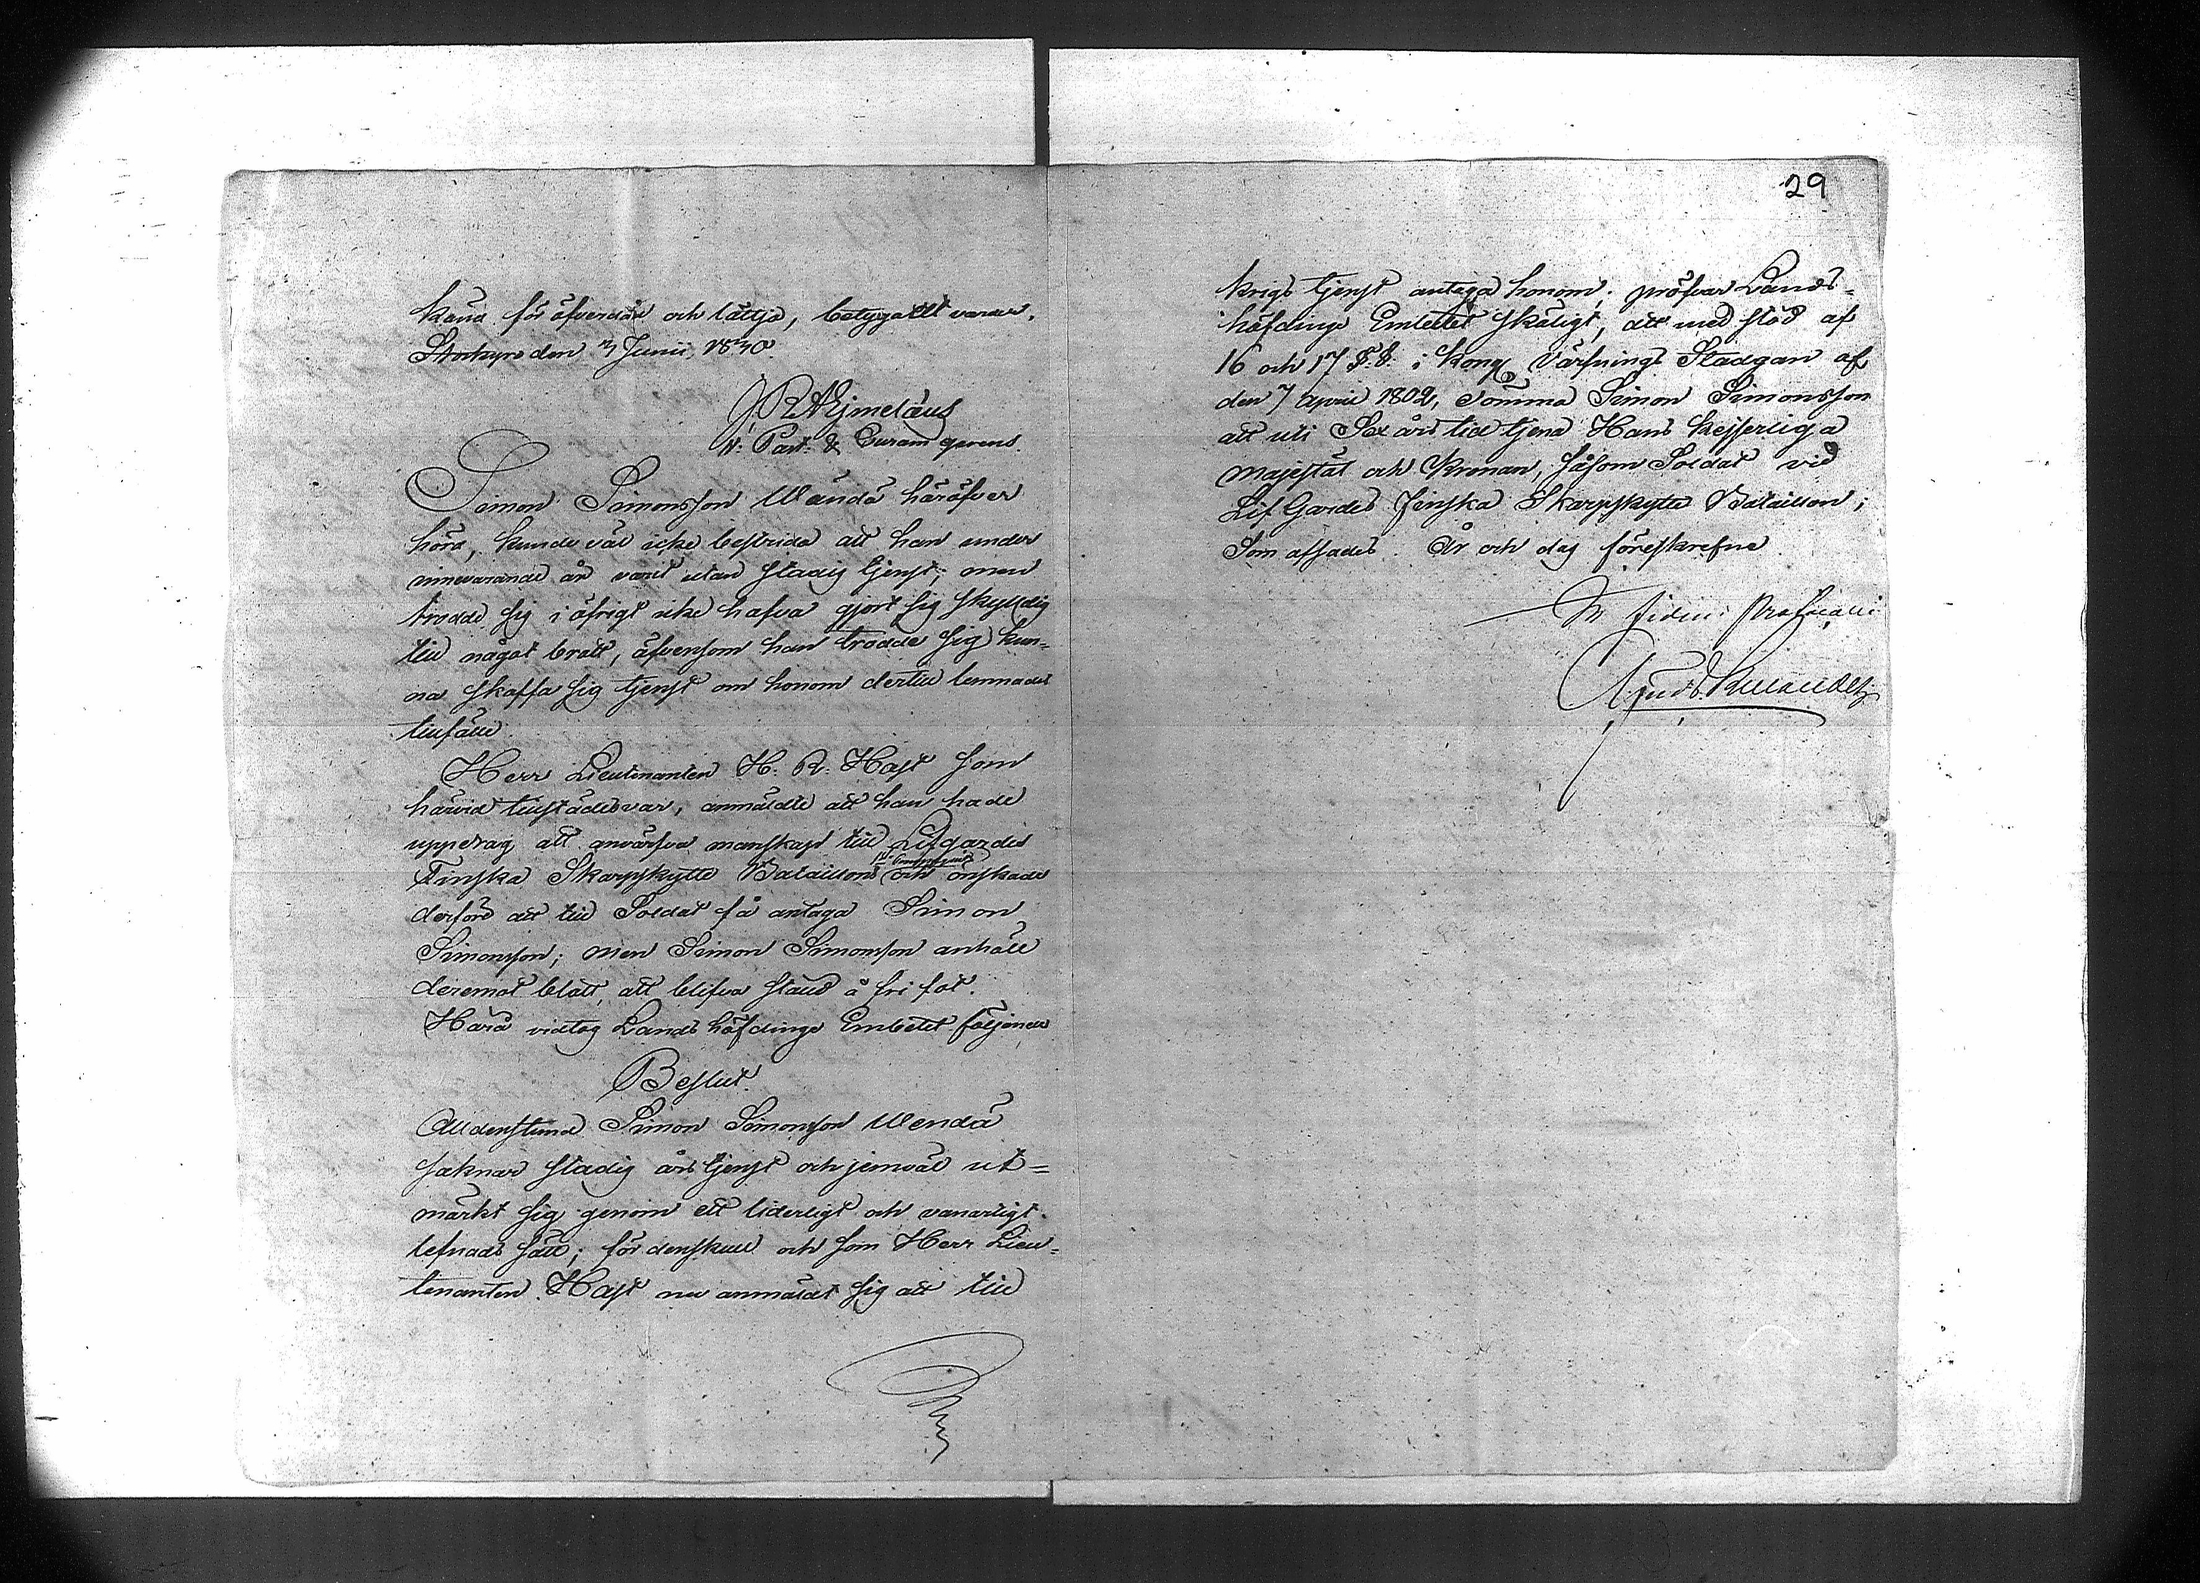 känd för öfverdåd och lättja, betygatt varder.
Storkyro den 3 Junii 1830.
J R Aejmelæus
V: Past: & Curam gerens.
Simon Simonsson Wendä häröfver
hörd, kunde väl icke bestrida att han under
innevarande år varit utan stadig tjenst; men
trodde sig i öfrigt icke hafva gjort sig skyldig
till något brott, äfvensom han trodde sig kun-
na skaffa sig tjenst om honom dertill lemnades
tillfälle.
Herr Lieutenanten H. R. Hast som
härvid tillstädes var, anmälde att han hade
uppdrag att anvärfva manskap till Lifgardes
Finska Skarpskytte Bataillons och önskade
derföre att till Soldat få antaga Simon
Simonsson; men Simon Simonsson anhöll
deremot blott, att blifva stäld å fri fot.
Härå vidtog Lands höfdinge Embetet följande
Beslut.
Alldenstund Simon Simonsson Wendä
saknar stadig års tjenst och jemväl ut=
märkt sig genom ett liderligt och vanartigt
lefnads sätt; för denskull och som Herr Lieu=
tenanten Hast nu anmäldt sig att till
29
krigs tjenst antaga honom; pröfvar Lands=
höfdinge Embetet skäligt, att med stöd af
16 och 17 §.§. i Kongl. Värfnings Stadgan af
den 7 April 1802, dömma Simon Simonsson
att uti Sex års tid tjena Hans Kejserliga
Majestät och Kronan, såsom Soldat vid
Lif Gardes Finska Skarpskytte Bataillon;
Som afsades. År och dag föreskrefne
In fidem Protocolli